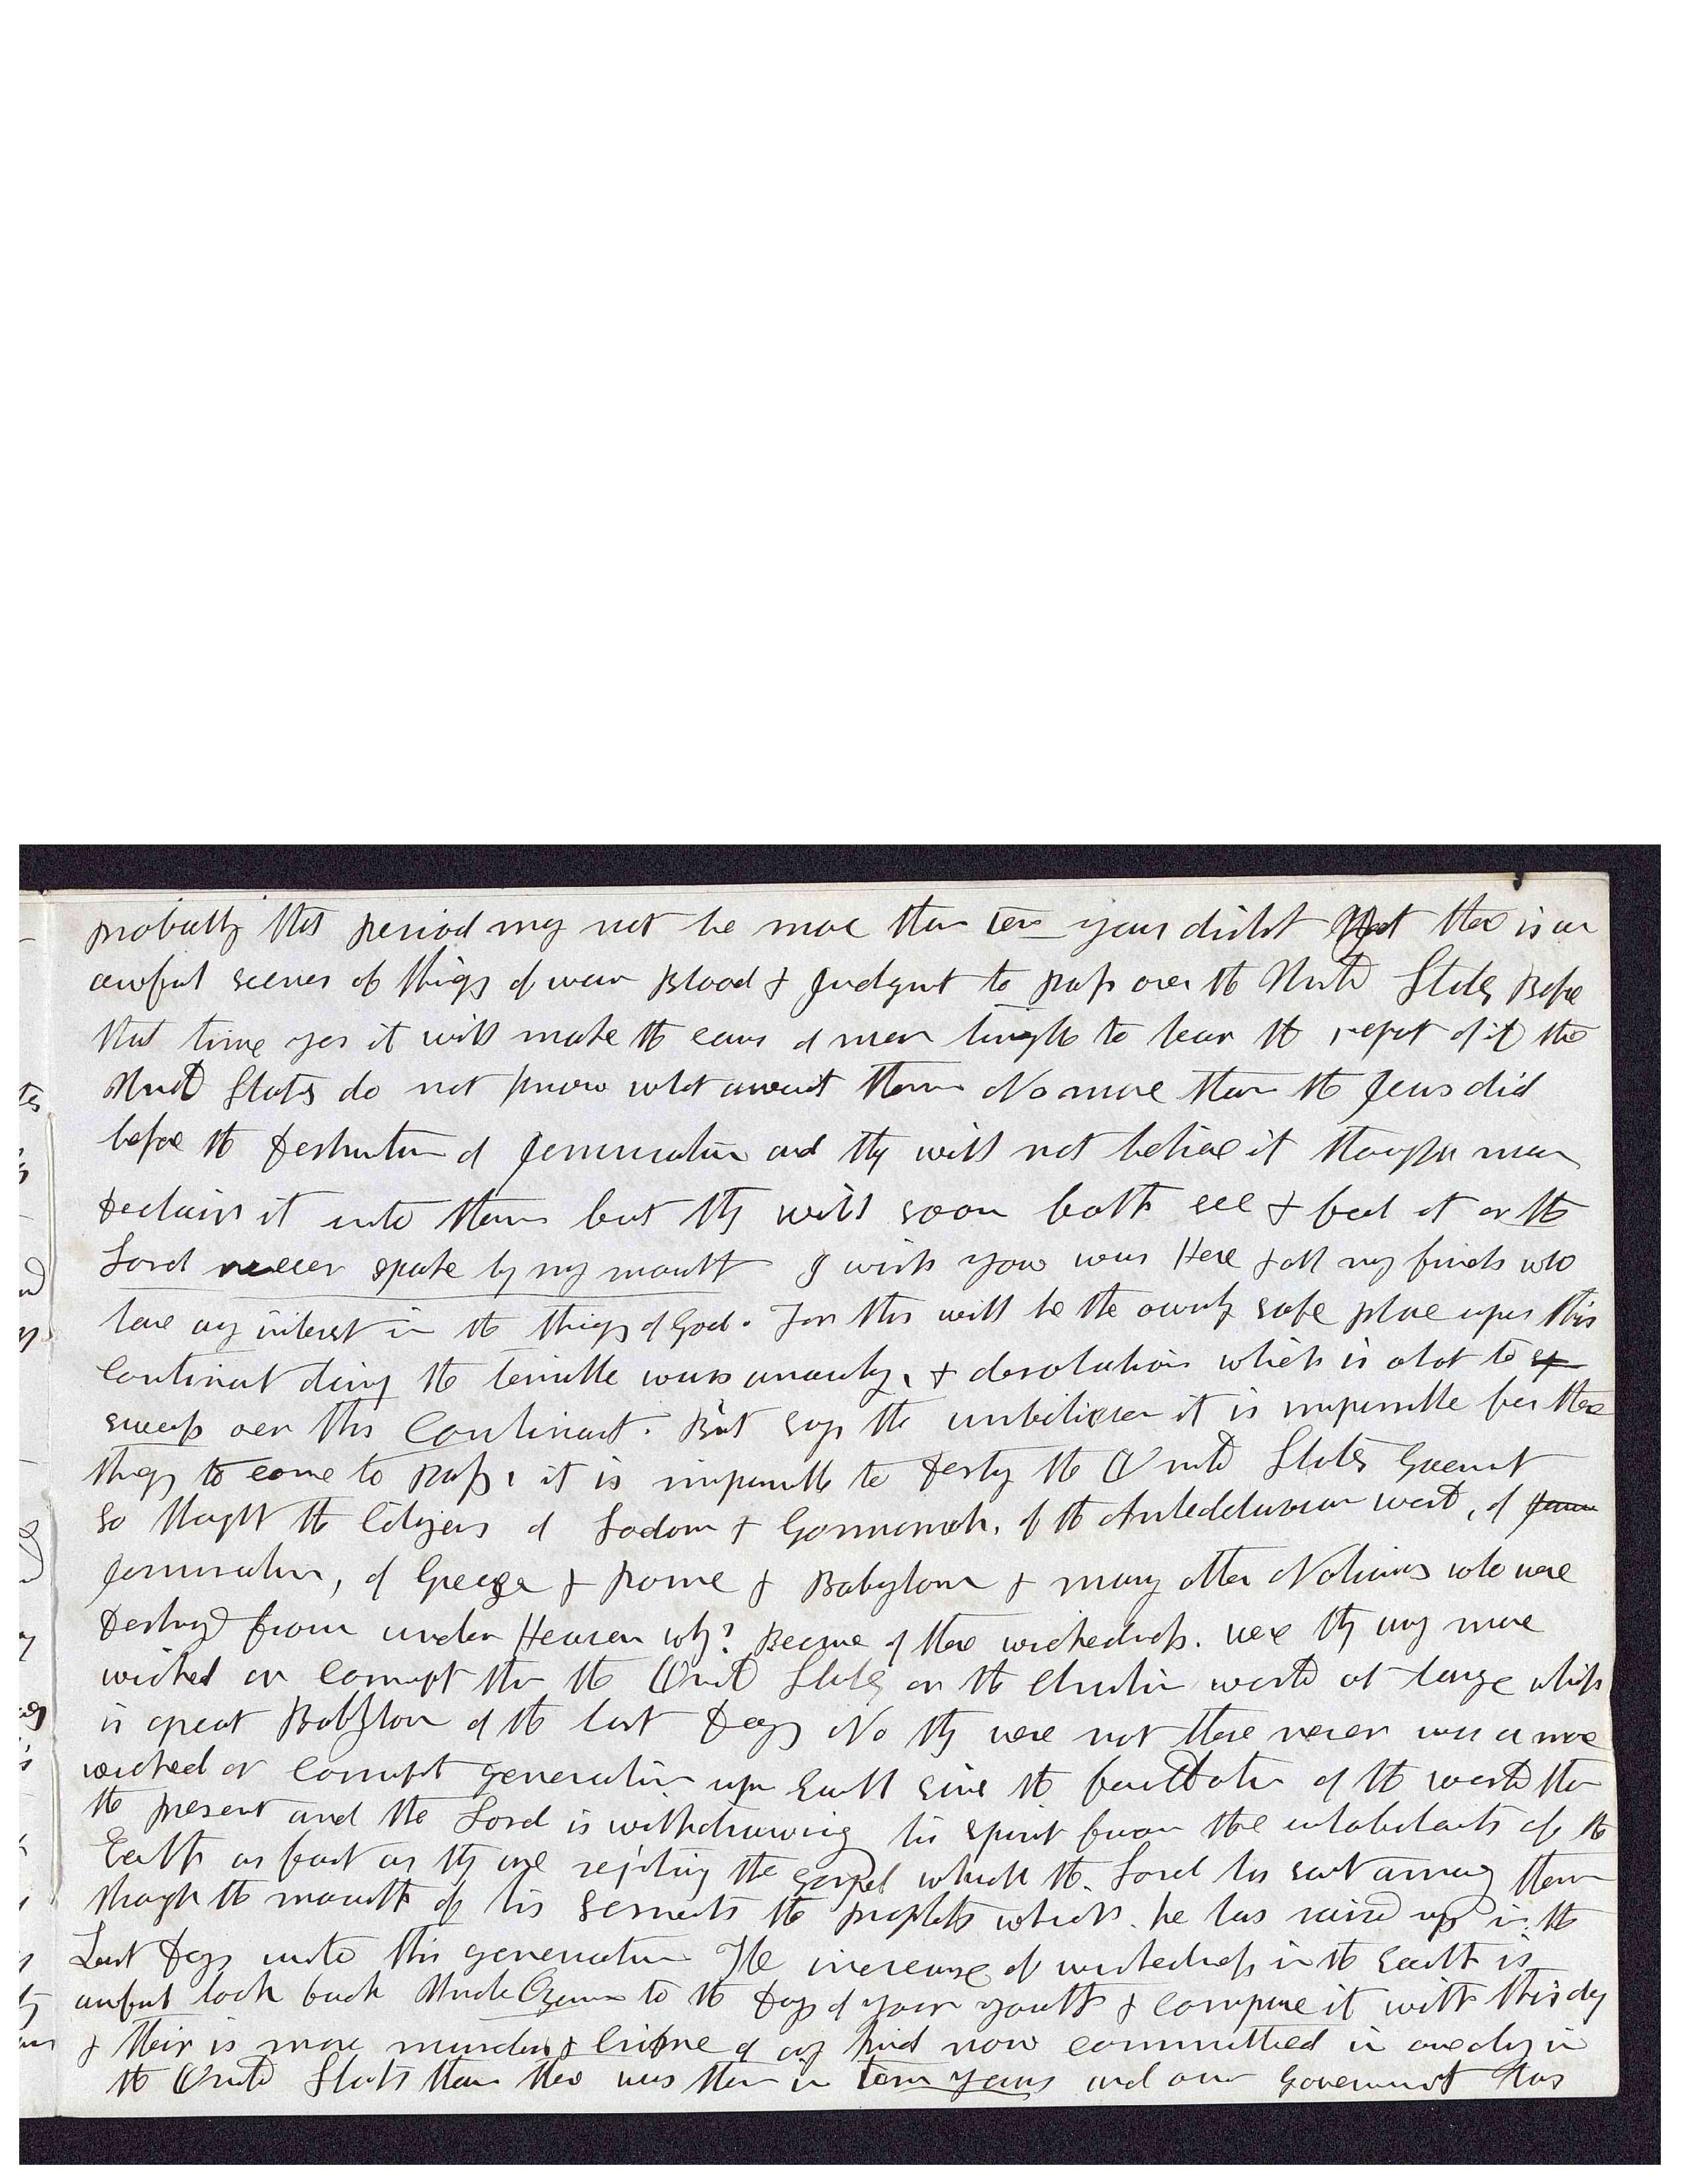 probably that period may not be more than ten years distant Yet there is an
awful scenes of things of war Blood & Judgmt to pass over the Unitd States Before
that time yes it will make the ears of men tingle to hear the report of it the
Unitd States do not know what awaits them No more than the Jews did
before the Destruction of Jerrusalem and they will not believe it though a man
Declairs it unto them but they will soon both see & feel it or the
Lord never spake by my mouth I wish you was Here & all my friends who
have any interest in the things of God. For this will be the ownly safe place upon this
Continant during the terrible wars anarchy, & desolations which is about to
sweep over this Continant. But says the unbeliever it is impossible for these
things to come to pass, it is impossible to Destroy the Unitd States Goverment
So thought the Citizens of Sodom & Gommorrah, of the Antedeluvian world, of
Jerrusalem, of Greece & Rome & Babylon & many other Nations who were
Destroyd from under Heaven why? Because of there wickedness. were they any more
wicked or Corrupt than the Unitd States or the Christian world at large which
is great Babylon of the last Days No they were not there never was a more
wicked or Corrupt generation upon Earth since the foundation of the world than
the present and the Lord is withdrawing his spirit from the inhabitants of the
Earth as fast as they are rejecting the gospel which the Lord has sent among them
through the mouth of his servants the prophets which he has raised up in the
Last Days unto this generation The increase of wickedness in the Earth is
awful look back Uncle Ozem to the Days of your youth & compare it with this day
& their is more murders & crime of any kind now committed in one day in
the Unitd States than there was then in ten years and our Government has